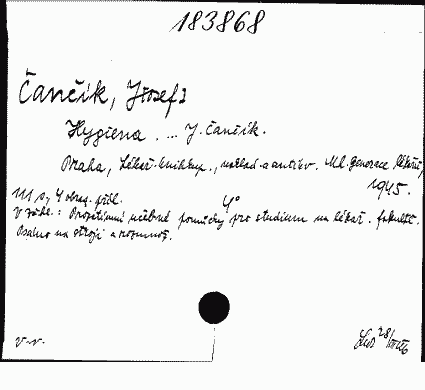 183868
Čančík, Josef
Hygiena. ... J. Čančík.
Praha, Lékař. knihkup., naklad. a antikv. Ml. generace lékařů,
1945.
111 s, 4 obraz. příl. 4°
V záhl.: Prozatímní učebné pomůcky pro studium na lékař. fakultě.
Psáno na stroji a rozmnož.
v.v. 28/